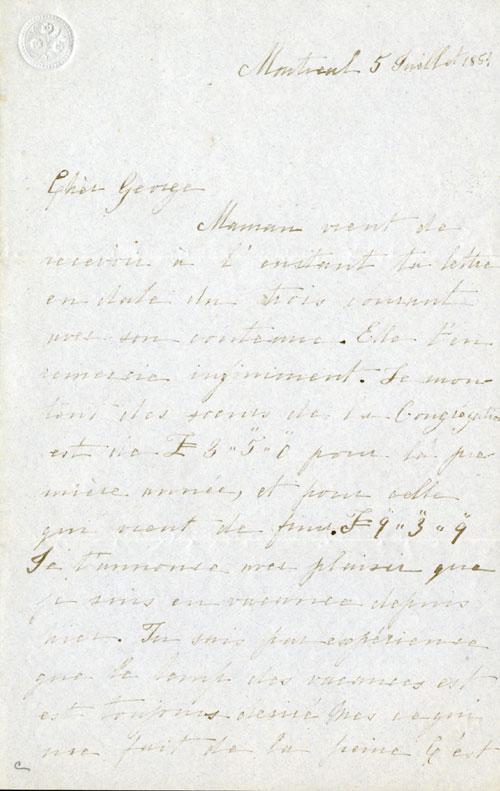 Montreal 5 Juillet 185
Chèr George
Maman vient de
recevoir à l'enstant ta lettre
en date du trois courant
avec son contenue. Elle t'en
remercie infiniment. Le mon-
tant des sœurs de la Congrégation
est de £3"5"0 pour la pre
mière année, et pour celle
qui vient de finir. £9"3"9
Je t'annonce avec plaisir que
je suis en vacance depuis
hier. Tu sais par expérience
que le temp des vacances est
est toujours desiré Mes ce qui
me fait de la peine c'est
c